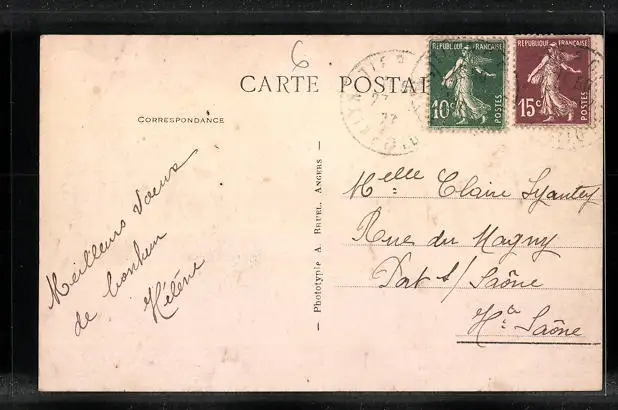 6
CARTE POSTAL
REPUBLIQUE FRANÇAISE
10c
POSTES
REPUBLIQUE FRANÇAISE
15c
POSTES
CORRESPONDANCE
Meilleurs vœux
de bonheur
Hélène
— Phototypie A. Bruel, Angers —
Melle Claire
Rue du Magny
Port s/ Saône
Hte Saône